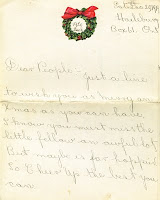 Haileybury
Box 54, Ont
Dear People - just a line
to wish you as merry an
Xmas as you can have
I know you must miss the
little fellow an awful lot
But maybe is far happier
So Cheer up the best you
can.